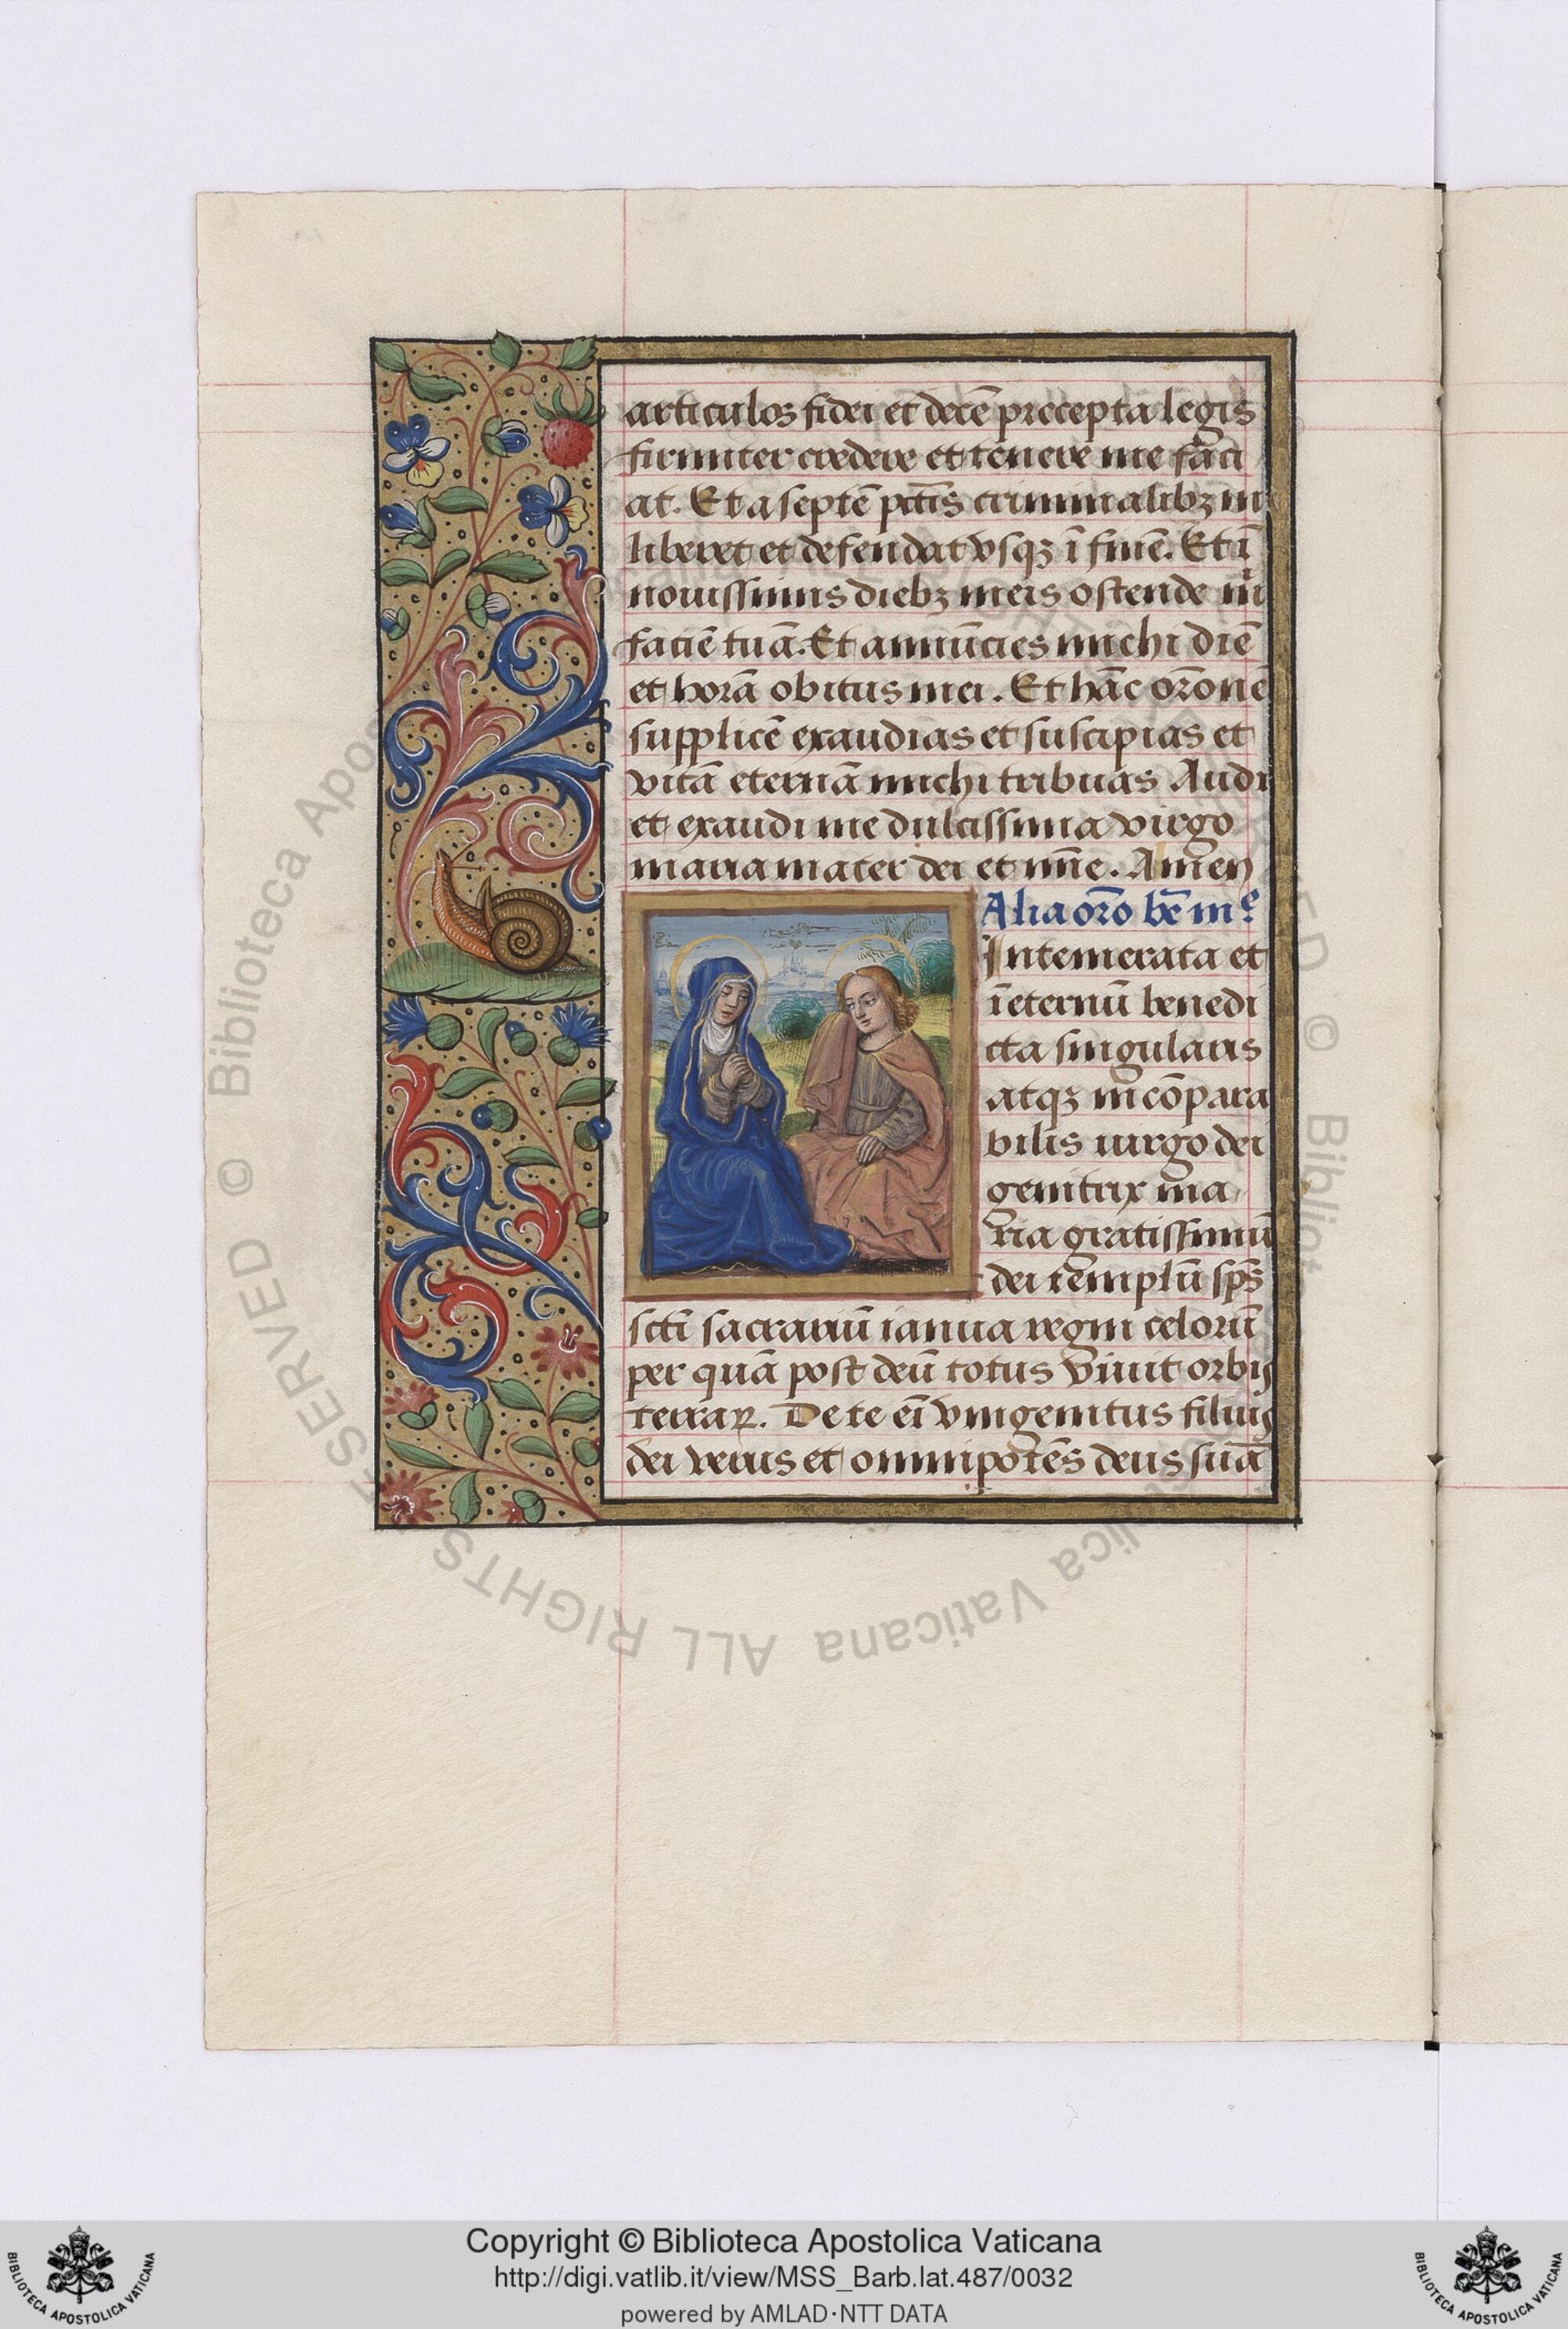 articulos fidei et decē precepta legis
firmiter credere et tenere me faci
at. Et a septē pctīs criminalibꝫ m
liberet et defendat vsqꝫ ī finē. Et ī
nouissimis diebꝫ meis ostende m̄
faciē tuā. Et annūcies michi diē
et horā obitus mei. Et hāc orōnē
supplicē exaudias et suscipias et
vitā eternā michi tribuas Audi
et exaudi me dulcissima virgo
maria mater dei et mīe. Amen
Alia orō bē mᵉ
Intemerata et
ī eternū benedi
cta singularis
atqꝫ incōpara
bilis uirgo dei
genitrix ma
ria gratissimū
dei templū spūs
sctī sacrariū ianua regni celorū
per quā post deū totus viuit orbis
terraꝝ. De te eī vnigenitus filius
dei verus et omnipotēs deus suā
Copyright © Biblioteca Apostolica Vaticana
http://digi.vatlib.it/view/MSS_Barb.lat.487/0032
powered by AMLAD·NTT DATA
BIBLIOTECA APOSTOLICA VATICANA
BIBLIOTECA APOSTOLICA VATICANA
© Biblioteca Apostolica Vaticana ALL RIGHTS RESERVED